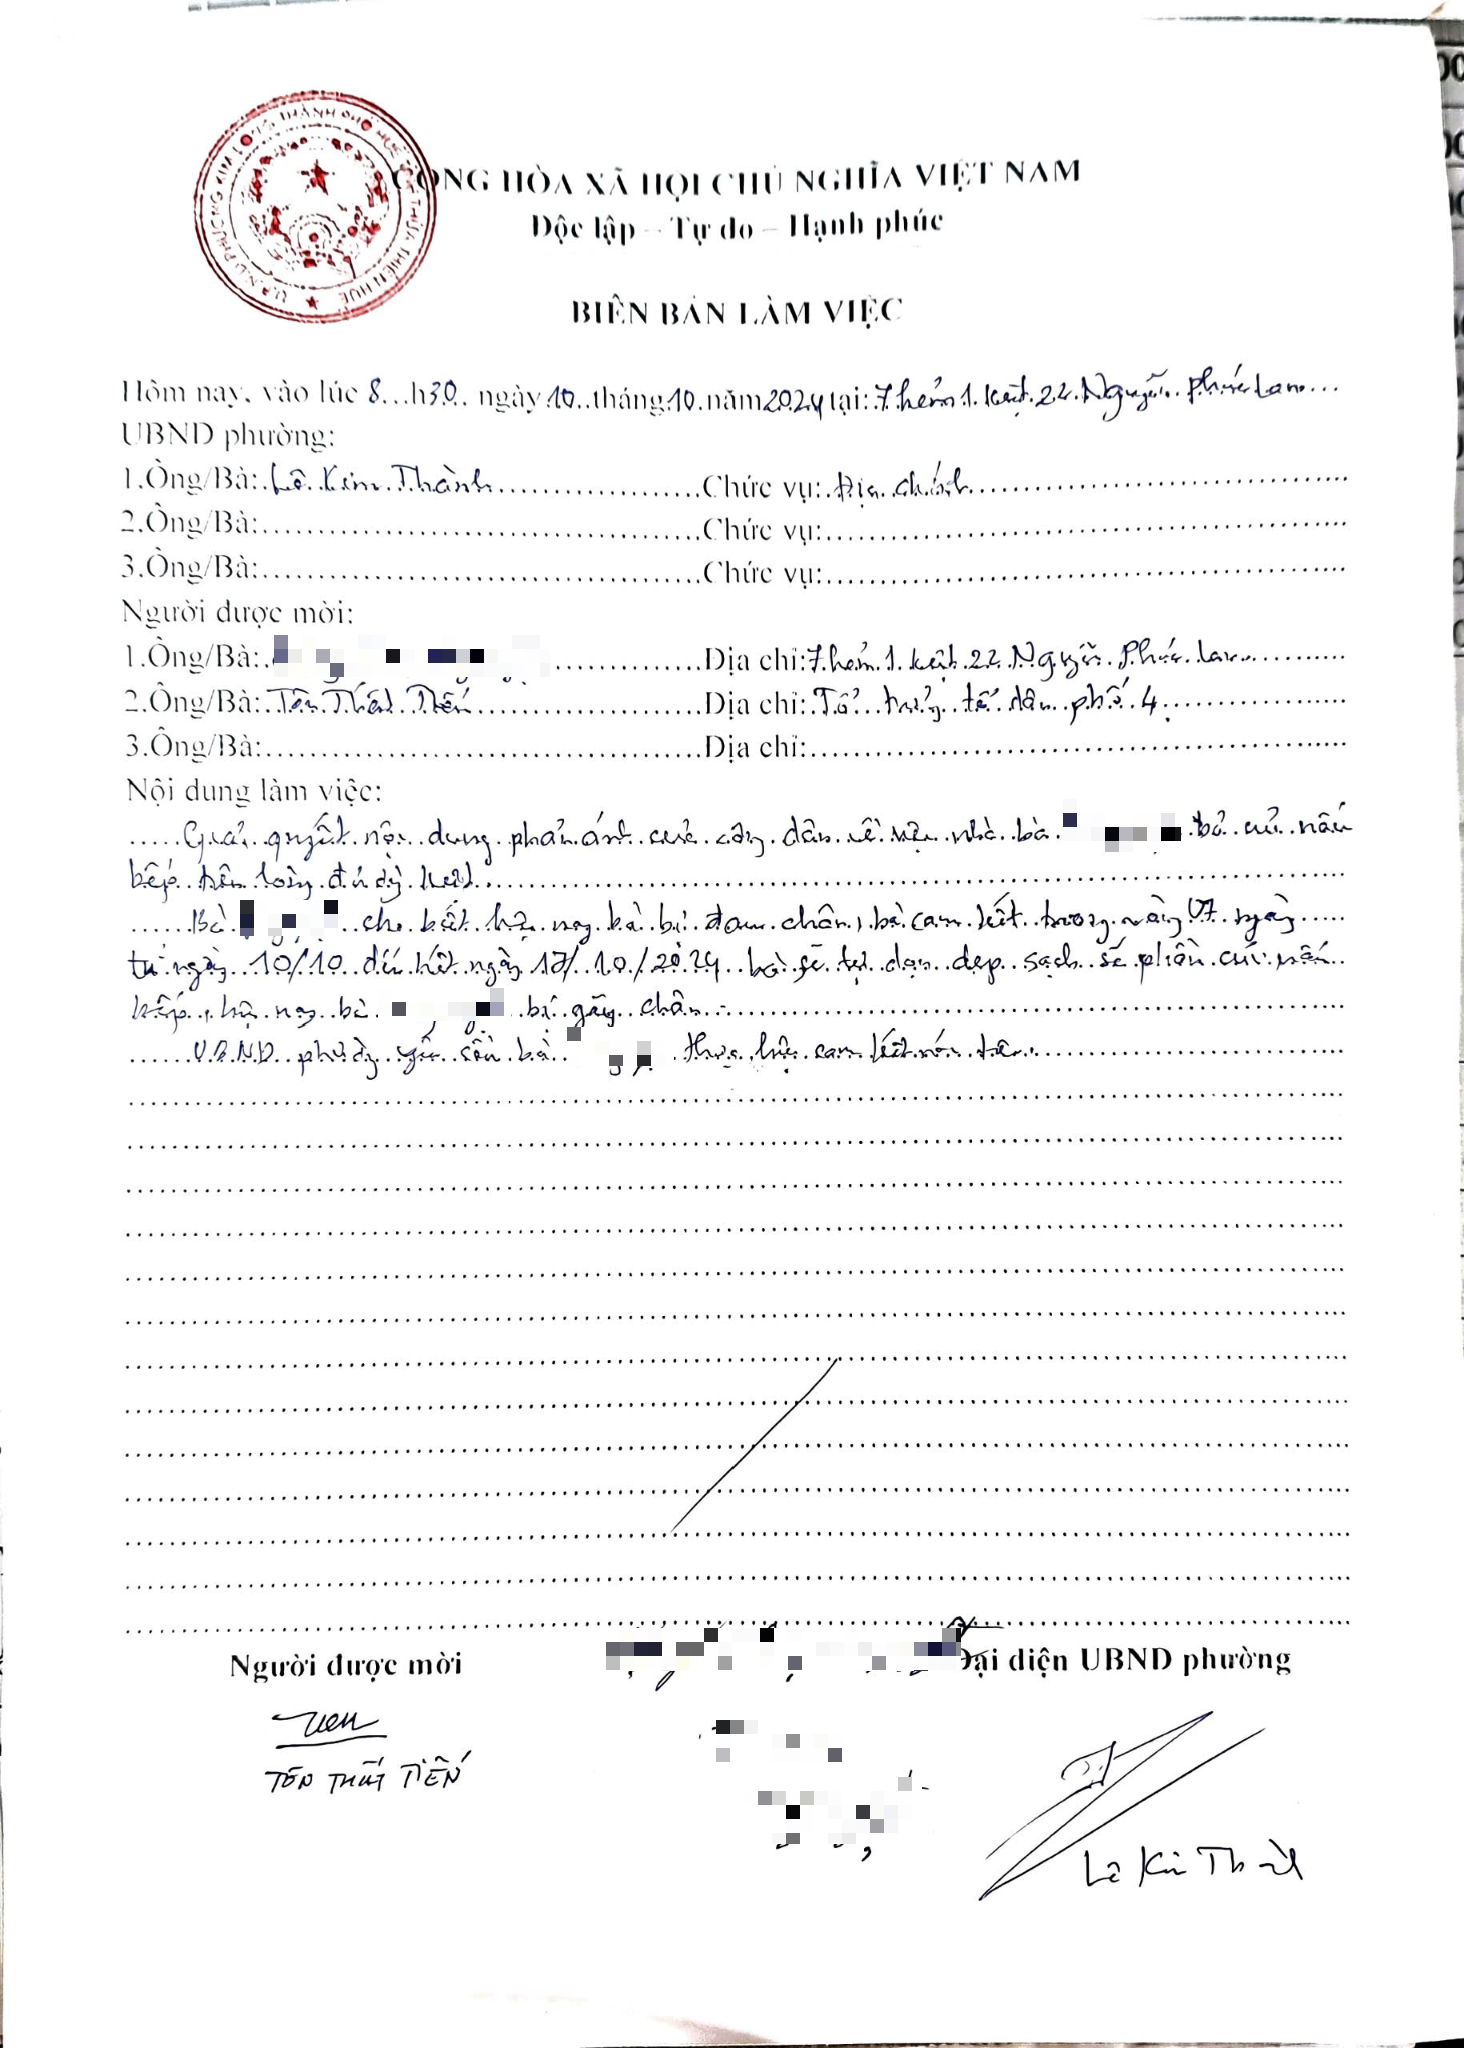 U.B.N.D PHƯỜNG KIM LONG THÀNH PHỐ HUẾ TỈNH THỪA THIÊN HUẾ
CỘNG HÒA XÃ HỘI CHỦ NGHĨA VIỆT NAM
Độc lập – Tự do – Hạnh phúc
BIÊN BẢN LÀM VIỆC
Hôm nay, vào lúc 8...h30.. ngày 10..tháng 10 năm 2024 tại: 7 hẻm 1 kiệt 22 Nguyễn Phúc Lan...
UBND phường:
1.Ông/Bà: Lê Kim Thành Chức vụ: Địa chính
2.Ông/Bà: Chức vụ:
3.Ông/Bà:
Chức vụ:
Người được mời:
1.Ông/Bà: Địa chỉ: 7 hẻm 1 kiệt 22 Nguyễn Phúc Lan
2.Ông/Bà: Tôn Thất Tiến Địa chỉ: Tổ trưởng tổ dân phố 4.
3.Ông/Bà: Địa chỉ:
Nội dung làm việc:
Giải quyết nội dung phản ánh của công dân về việc nhà bà bỏ củi nấu
bếp trên lòng đường kiệt.
Bà cho biết hiện nay bà bị đau chân, bà cam kết trong vòng 07 ngày
từ ngày 10/10 đến hết ngày 17/10/2024 bà sẽ tự dọn dẹp sạch sẽ phần củi nấu
bếp, hiện nay bà bị gãy chân.
U.B.N.D phường yêu cầu bà thực hiện cam kết nói trên.
Người được mời
Đại diện UBND phường
TÔN THẤT TIẾN
Lê Kim Thành